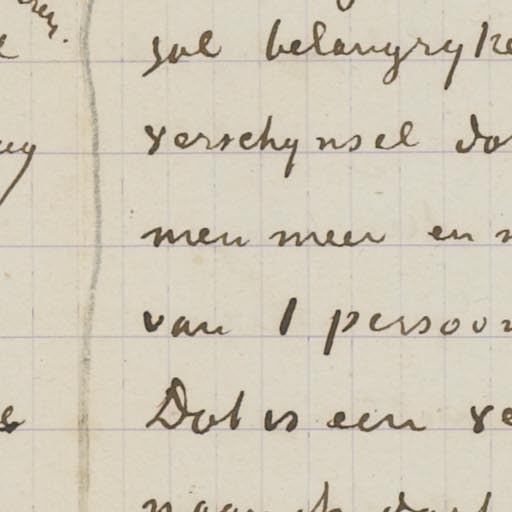 zal belangryke
verschynsel dat
men meer en m
van 1 persoon
Dat is een ve